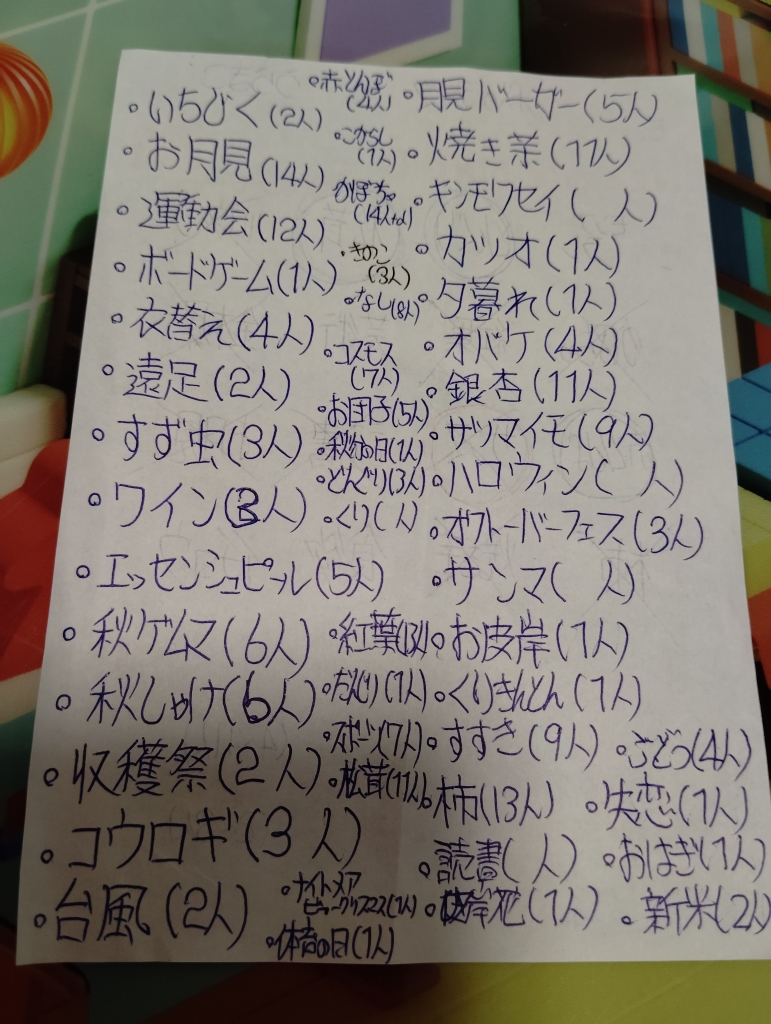 ・いちじく(2人)
・お月見(14人)
・運動会(12人)
・ボードゲーム(1人)
・衣替え(4人)
・遠足(2人)
・すず虫(3人)
・ワイン(3人)
・エッセンシュピール(5人)
・秋ゲムマ(6人)
・秋しゃけ(6人)
・収穫祭(2人)
・コウロギ(3人)
・台風(2人)
・赤とんぼ
(4人)
・こがらし
(1人)
かぼちゃ
・きのこ
(3人)
・なし(8人)
・コスモス
(7人)
・お団子(5人)
・秋分の日(1人)
・どんぐり(3人)
・くり( 人)
・紅葉(13人)
・だんじり(1人)
・スポーツ(7人)
・松茸(11人)
・ナイトメア
・体育の日(1人)
・月見バーガー(5人)
・焼き芋(11人)
・キンモクセイ( 人)
・カツオ(1人)
・夕暮れ(1人)
・オバケ(4人)
・銀杏(11人)
・サツマイモ(9人)
・ハロウィン( 人)
・オクトーバーフェス(3人)
・サンマ( 人)
・お皮岸(1人)
・くりきんとん(1人)
・すすき(9人)
・柿(13人)
・読書( 人)
・彼岸花(1人)
・ぶどう(4人)
・失恋(1人)
・おはぎ(1人)
・新米(2人)